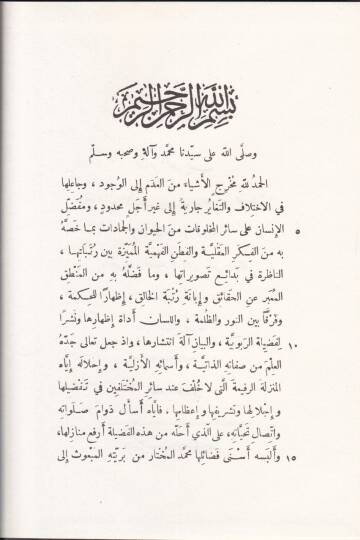 بسم الله الرحمن الرحيم
وصلّى الله على سيّدنا محمّد وآلهِ وصحبه وسلّم
الحمدُ للهِ مُخْرِجِ الأشياء منَ العَدَمِ إلى الوُجود ، وجاعلِها
في الاختلاف والتّغايُر جاريةً إلى غير أجَلٍ محدودٍ ، ومُفَضِّلِ
٥ الإنسان على سائر المخلوقات من الحيوان والجمادات بما خَصَّهُ
به منَ الفِكَرِ العَقْليّة والفِطَنِ الفَهْميّة المُمَيّزة بين رُتَباتها ،
الناظرة في بَدائِع تَصويراتها ، وما فَضَّلَهُ بهِ من المَنْطِقِ
المُعبِّر عنِ الحَقائق وإبانَةِ رُتْبَة الخالِقِ ، إظهارًا للحِكمة ،
وفَرْقًا بين النور والظُلمة ، واللسان أداة إظهارها ونَشْرًا
١٠ لفَضيلة الرّبوبيّة ، والبيانِ آلة انتشارها ، وإذ جعل تعالى جَدُّهُ
العِلْمَ من صفاتِهِ الذاتيّة ، وأسمائِهِ الأزليّة ، وإحلاله إيّاه
المنزلةَ الرفيعةَ الّتي لا خُلْفَ عند سائرِ المُخْتَلِفين في تَفْضيلها
وإجْلالها وتشريفها وإعظامها . فإيّاه أسأل دَوامَ صَلَواتِهِ
واتّصالَ تَحيّاتِهِ، على الّذي أحَلّه من هذه الفَضيلة أرفعَ منازلِها،
١٥ وألبسه أسْنَى فَضائلِها محمّد المُخْتار من بَريّتِهِ المَبْعوث إلى